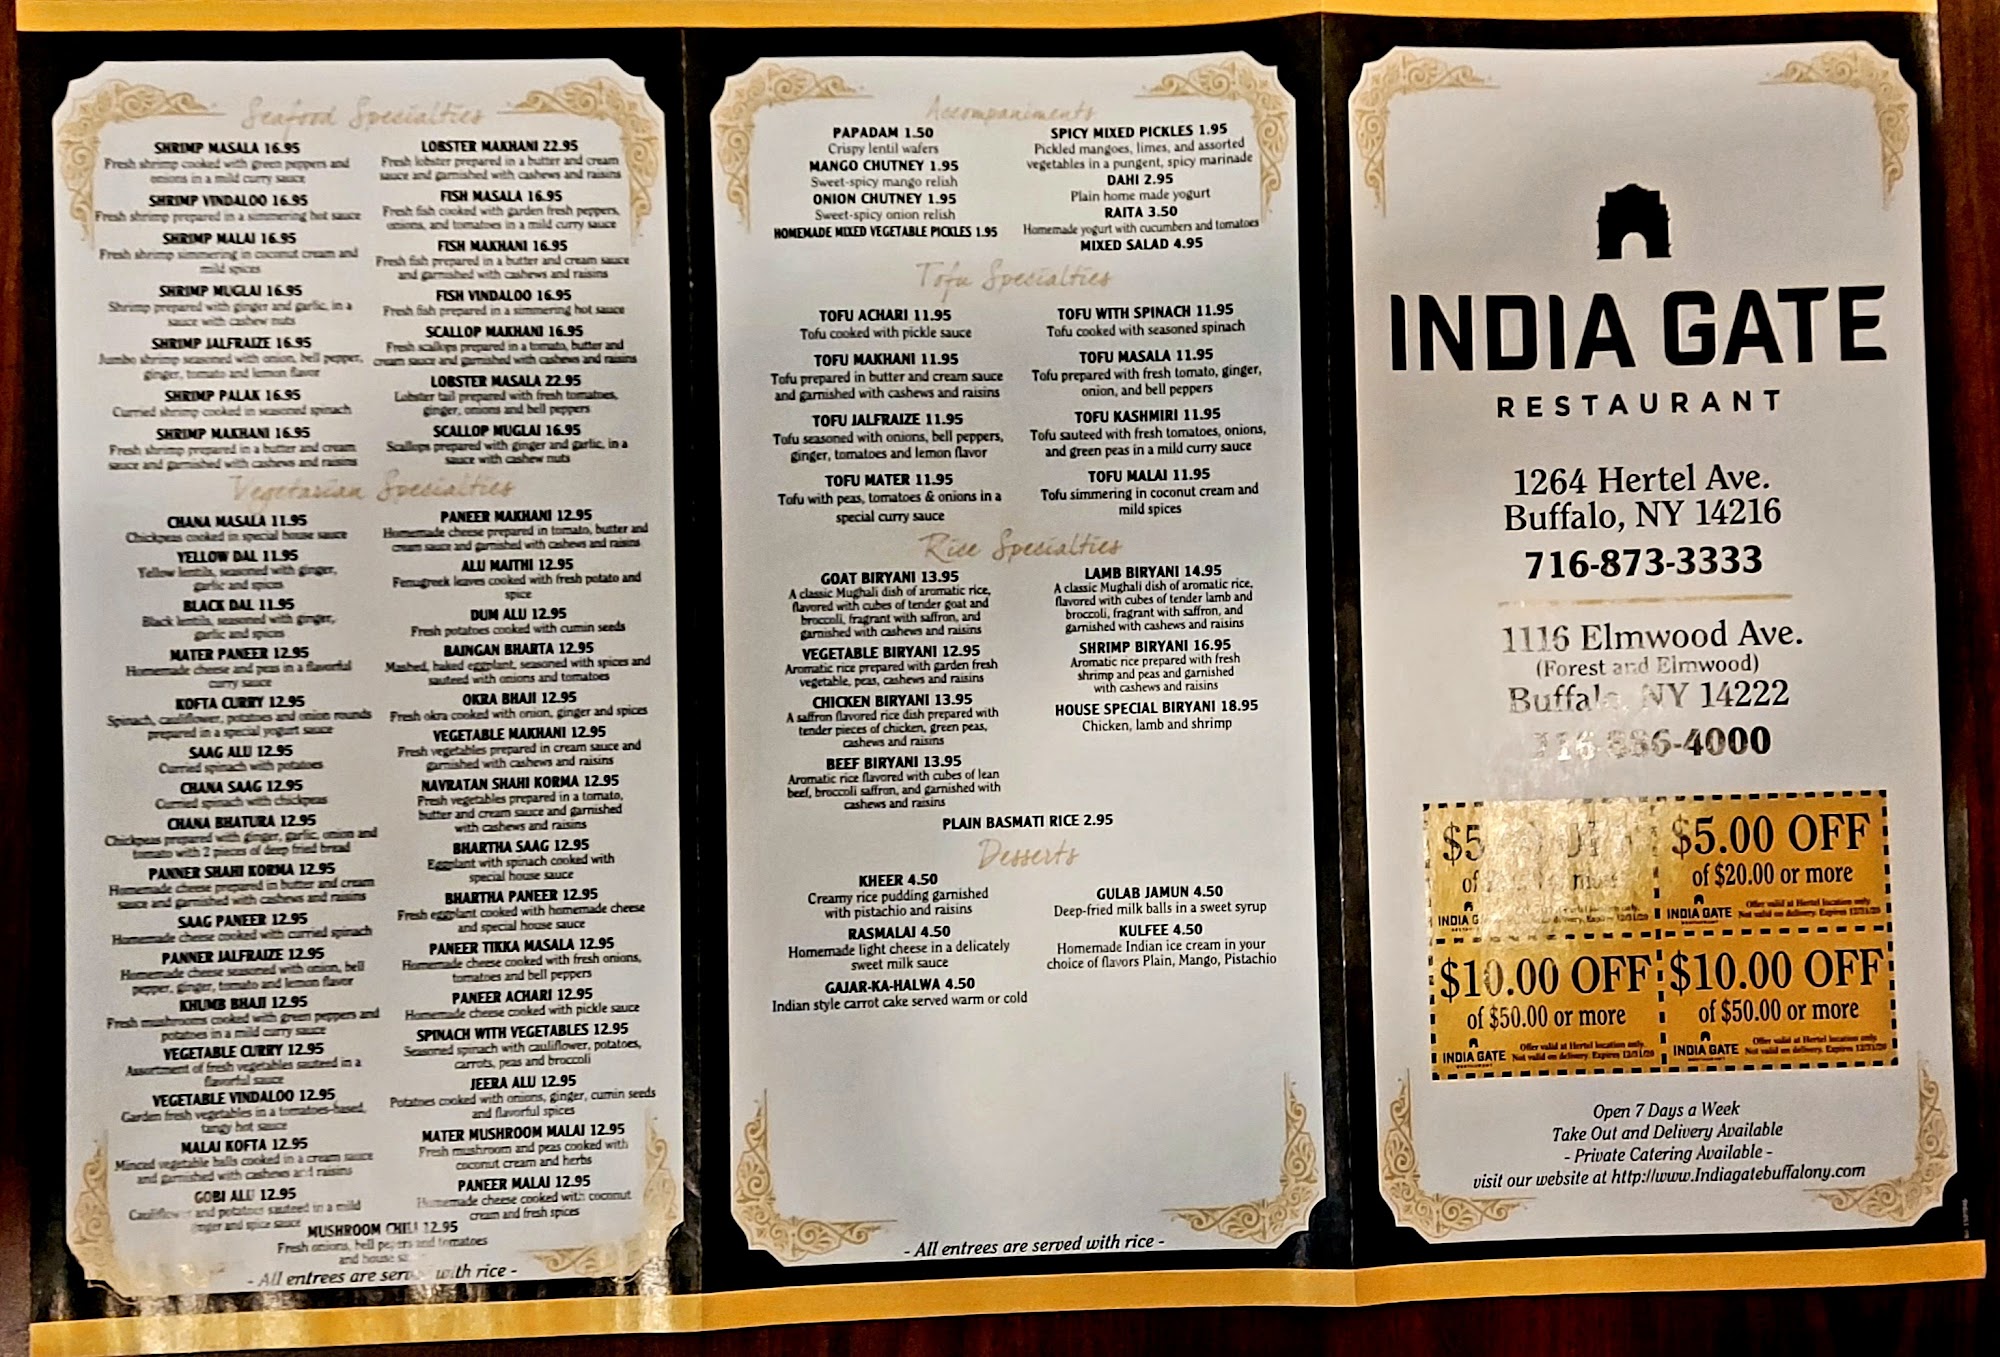 Seafood Specialties
SHRIMP MASALA 16.95
Fresh shrimp cooked with green peppers and
onions in a mild curry sauce
SHRIMP VINDALOO 16.95
Fresh shrimp prepared in a simmering hot sauce
SHRIMP MALAI 16.95
Fresh shrimp simmering in coconut cream and
mild spices
SHRIMP MUGLAI 16.95
Shrimp prepared with ginger and garlic, in a
sauce with cashew nuts
SHRIMP JALFRAIZE 16.95
Jumbo shrimp seasoned with onion, bell pepper,
ginger, tomato and lemon flavor
SHRIMP PALAK 16.95
Curried shrimp cooked in seasoned spinach
SHRIMP MAKHANI 16.95
Fresh shrimp prepared in a butter and cream
sauce and garnished with cashews and raisins
LOBSTER MAKHANI 22.95
Fresh lobster prepared in a butter and cream
sauce and garnished with cashews and raisins
FISH MASALA 16.95
Fresh fish cooked with garden fresh peppers,
onions, and tomatoes in a mild curry sauce
FISH MAKHANI 16.95
Fresh fish prepared in a butter and cream sauce
and garnished with cashews and raisins
FISH VINDALOO 16.95
Fresh fish prepared in a simmering hot sauce
SCALLOP MAKHANI 16.95
Fresh scallops prepared in a tomato, butter and
cream sauce and garnished with cashews and raisins
LOBSTER MASALA 22.95
Lobster tail prepared with fresh tomatoes,
ginger, onions and bell peppers
SCALLOP MUGLAI 16.95
Scallops prepared with ginger and garlic, in a
sauce with cashew nuts
Vegetarian Specialties
CHANA MASALA 11.95
Chickpeas cooked in special house sauce
YELLOW DAL 11.95
Yellow lentils, seasoned with ginger,
garlic and spices
BLACK DAL 11.95
Black lentils, seasoned with ginger,
garlic and spices
MATER PANEER 12.95
Homemade cheese and peas in a flavorful
curry sauce
KOFTA CURRY 12.95
Spinach, cauliflower, potatoes and onion rounds
prepared in a special yogurt sauce
SAAG ALU 12.95
Curried spinach with potatoes
CHANA SAAG 12.95
Curried spinach with chickpeas
CHANA BHATURA 12.95
Chickpeas prepared with ginger, garlic, onion and
tomato with 2 pieces of deep fried bread
PANNER SHAHI KORMA 12.95
Homemade cheese prepared in butter and cream
sauce and garnished with cashews and raisins
SAAG PANEER 12.95
Homemade cheese cooked with curried spinach
PANNER JALFRAIZE 12.95
Homemade cheese seasoned with onion, bell
pepper, ginger, tomato and lemon flavor
KHUMB BHAJI 12.95
Fresh mushrooms cooked with green peppers and
potatoes in a mild curry sauce
VEGETABLE CURRY 12.95
Assortment of fresh vegetables sauteed in a
flavorful sauce
VEGETABLE VINDALOO 12.95
Garden fresh vegetables in a tomatoes-based,
tangy hot sauce
MALAI KOFTA 12.95
Minced vegetable balls cooked in a cream sauce
and garnished with cashews and raisins
GOBI ALU 12.95
Cauliflower and potatoes sauteed in a mild
ginger and spice sauce
PANEER MAKHANI 12.95
Homemade cheese prepared in tomato, butter and
cream sauce and garnished with cashews and raisins
ALU MAITHI 12.95
Fenugreek leaves cooked with fresh potato and
spice
DUM ALU 12.95
Fresh potatoes cooked with cumin seeds
BAINGAN BHARTA 12.95
Mashed, baked eggplant, seasoned with spices and
sauteed with onions and tomatoes
OKRA BHAJI 12.95
Fresh okra cooked with onion, ginger and spices
VEGETABLE MAKHANI 12.95
Fresh vegetables prepared in cream sauce and
garnished with cashews and raisins
NAVRATAN SHAHI KORMA 12.95
Fresh vegetables prepared in a tomato,
butter and cream sauce and garnished
with cashews and raisins
BHARTHA SAAG 12.95
Eggplant with spinach cooked with
special house sauce
BHARTHA PANEER 12.95
Fresh eggplant cooked with homemade cheese
and special house sauce
PANEER TIKKA MASALA 12.95
Homemade cheese cooked with fresh onions,
tomatoes and bell peppers
PANEER ACHARI 12.95
Homemade cheese cooked with pickle sauce
SPINACH WITH VEGETABLES 12.95
Seasoned spinach with cauliflower, potatoes,
carrots, peas and broccoli
JEERA ALU 12.95
Potatoes cooked with onions, ginger, cumin seeds
and flavorful spices
MATER MUSHROOM MALAI 12.95
Fresh mushroom and peas cooked with
coconut cream and herbs
PANEER MALAI 12.95
Homemade cheese cooked with coconut
cream and fresh spices
MUSHROOM CHILI 12.95
Fresh onions, bell pepers and tomatoes
and house
- All entrees are served with rice -
Accompaniments
PAPADAM 1.50
Crispy lentil wafers
MANGO CHUTNEY 1.95
Sweet-spicy mango relish
ONION CHUTNEY 1.95
Sweet-spicy onion relish
HOMEMADE MIXED VEGETABLE PICKLES 1.95
SPICY MIXED PICKLES 1.95
Pickled mangoes, limes, and assorted
vegetables in a pungent, spicy marinade
DAHI 2.95
Plain home made yogurt
RAITA 3.50
Homemade yogurt with cucumbers and tomatoes
MIXED SALAD 4.95
Tofu Specialties
TOFU ACHARI 11.95
Tofu cooked with pickle sauce
TOFU MAKHANI 11.95
Tofu prepared in butter and cream sauce
and garnished with cashews and raisins
TOFU JALFRAIZE 11.95
Tofu seasoned with onions, bell peppers,
ginger, tomatoes and lemon flavor
TOFU MATER 11.95
Tofu with peas, tomatoes & onions in a
special curry sauce
TOFU WITH SPINACH 11.95
Tofu cooked with seasoned spinach
TOFU MASALA 11.95
Tofu prepared with fresh tomato, ginger,
onion, and bell peppers
TOFU KASHMIRI 11.95
Tofu sauteed with fresh tomatoes, onions,
and green peas in a mild curry sauce
TOFU MALAI 11.95
Tofu simmering in coconut cream and
mild spices
Rice Specialties
GOAT BIRYANI 13.95
A classic Mughali dish of aromatic rice,
flavored with cubes of tender goat and
broccoli, fragrant with saffron, and
garnished with cashews and raisins
VEGETABLE BIRYANI 12.95
Aromatic rice prepared with garden fresh
vegetable, peas, cashews and raisins
CHICKEN BIRYANI 13.95
A saffron flavored rice dish prepared with
tender pieces of chicken, green peas,
cashews and raisins
BEEF BIRYANI 13.95
Aromatic rice flavored with cubes of lean
beef, broccoli saffron, and garnished with
cashews and raisins
LAMB BIRYANI 14.95
A classic Mughali dish of aromatic rice,
flavored with cubes of tender lamb and
broccoli, fragrant with saffron, and
garnished with cashews and raisins
SHRIMP BIRYANI 16.95
Aromatic rice prepared with fresh
shrimp and peas and garnished
with cashews and raisins
HOUSE SPECIAL BIRYANI 18.95
Chicken, lamb and shrimp
PLAIN BASMATI RICE 2.95
Desserts
KHEER 4.50
Creamy rice pudding garnished
with pistachio and raisins
RASMALAI 4.50
Homemade light cheese in a delicately
sweet milk sauce
GAJAR-KA-HALWA 4.50
Indian style carrot cake served warm or cold
GULAB JAMUN 4.50
Deep-fried milk balls in a sweet syrup
KULFEE 4.50
Homemade Indian ice cream in your
choice of flavors Plain, Mango, Pistachio
- All entrees are served with rice -
INDIA GATE
RESTAURANT
1264 Hertel Ave.
Buffalo, NY 14216
716-873-3333
1116 Elmwood Ave.
(Forest and Elmwood)
Buffalo, NY 14222
716-886-4000
$5.00 OFF
of $20.00 or more
INDIA GATE
Offer valid at Hertel location only.
Not valid on delivery. Expires 12/31/20
$10.00 OFF
of $50.00 or more
INDIA GATE
RESTAURANT
Offer valid at Hertel location only.
Not valid on delivery. Expires 12/31/20
$10.00 OFF
of $50.00 or more
INDIA GATE
RESTAURANT
Offer valid at Hertel location only.
Not valid on delivery. Expires 12/31/20
Open 7 Days a Week
Take Out and Delivery Available
- Private Catering Available -
visit our website at http://www.Indiagatebuffalony.com